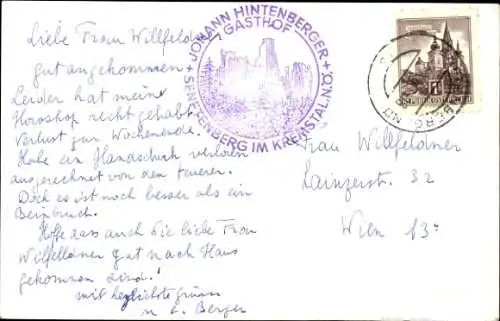 Liebe Frau Willfeldner
gut angekommen
Leider hat meine
Horoskop recht gehabt
Verlust zur Wochenende.
Habe ein Handschuh verloren
ausgerechnet von den teueren.
Doch es ist noch besser als ein
Beinbruch.
Hoffe dass auch die liebe Frau
Willfeldner gut nach Haus
gekommen sind!
mit herzlichste Grüsse
Berger
JOHANN HINTENBERGER
GASTHOF
SENFTENBERG IM KREMSTAL, N.Ö.
Frau Willfeldner
Lainzerst. 32
Wien 13.